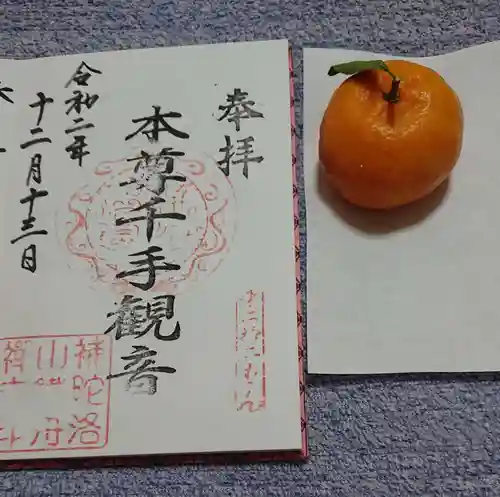 奉拝
本尊千手観音
令和二年
十二月十三日
補陀洛
山